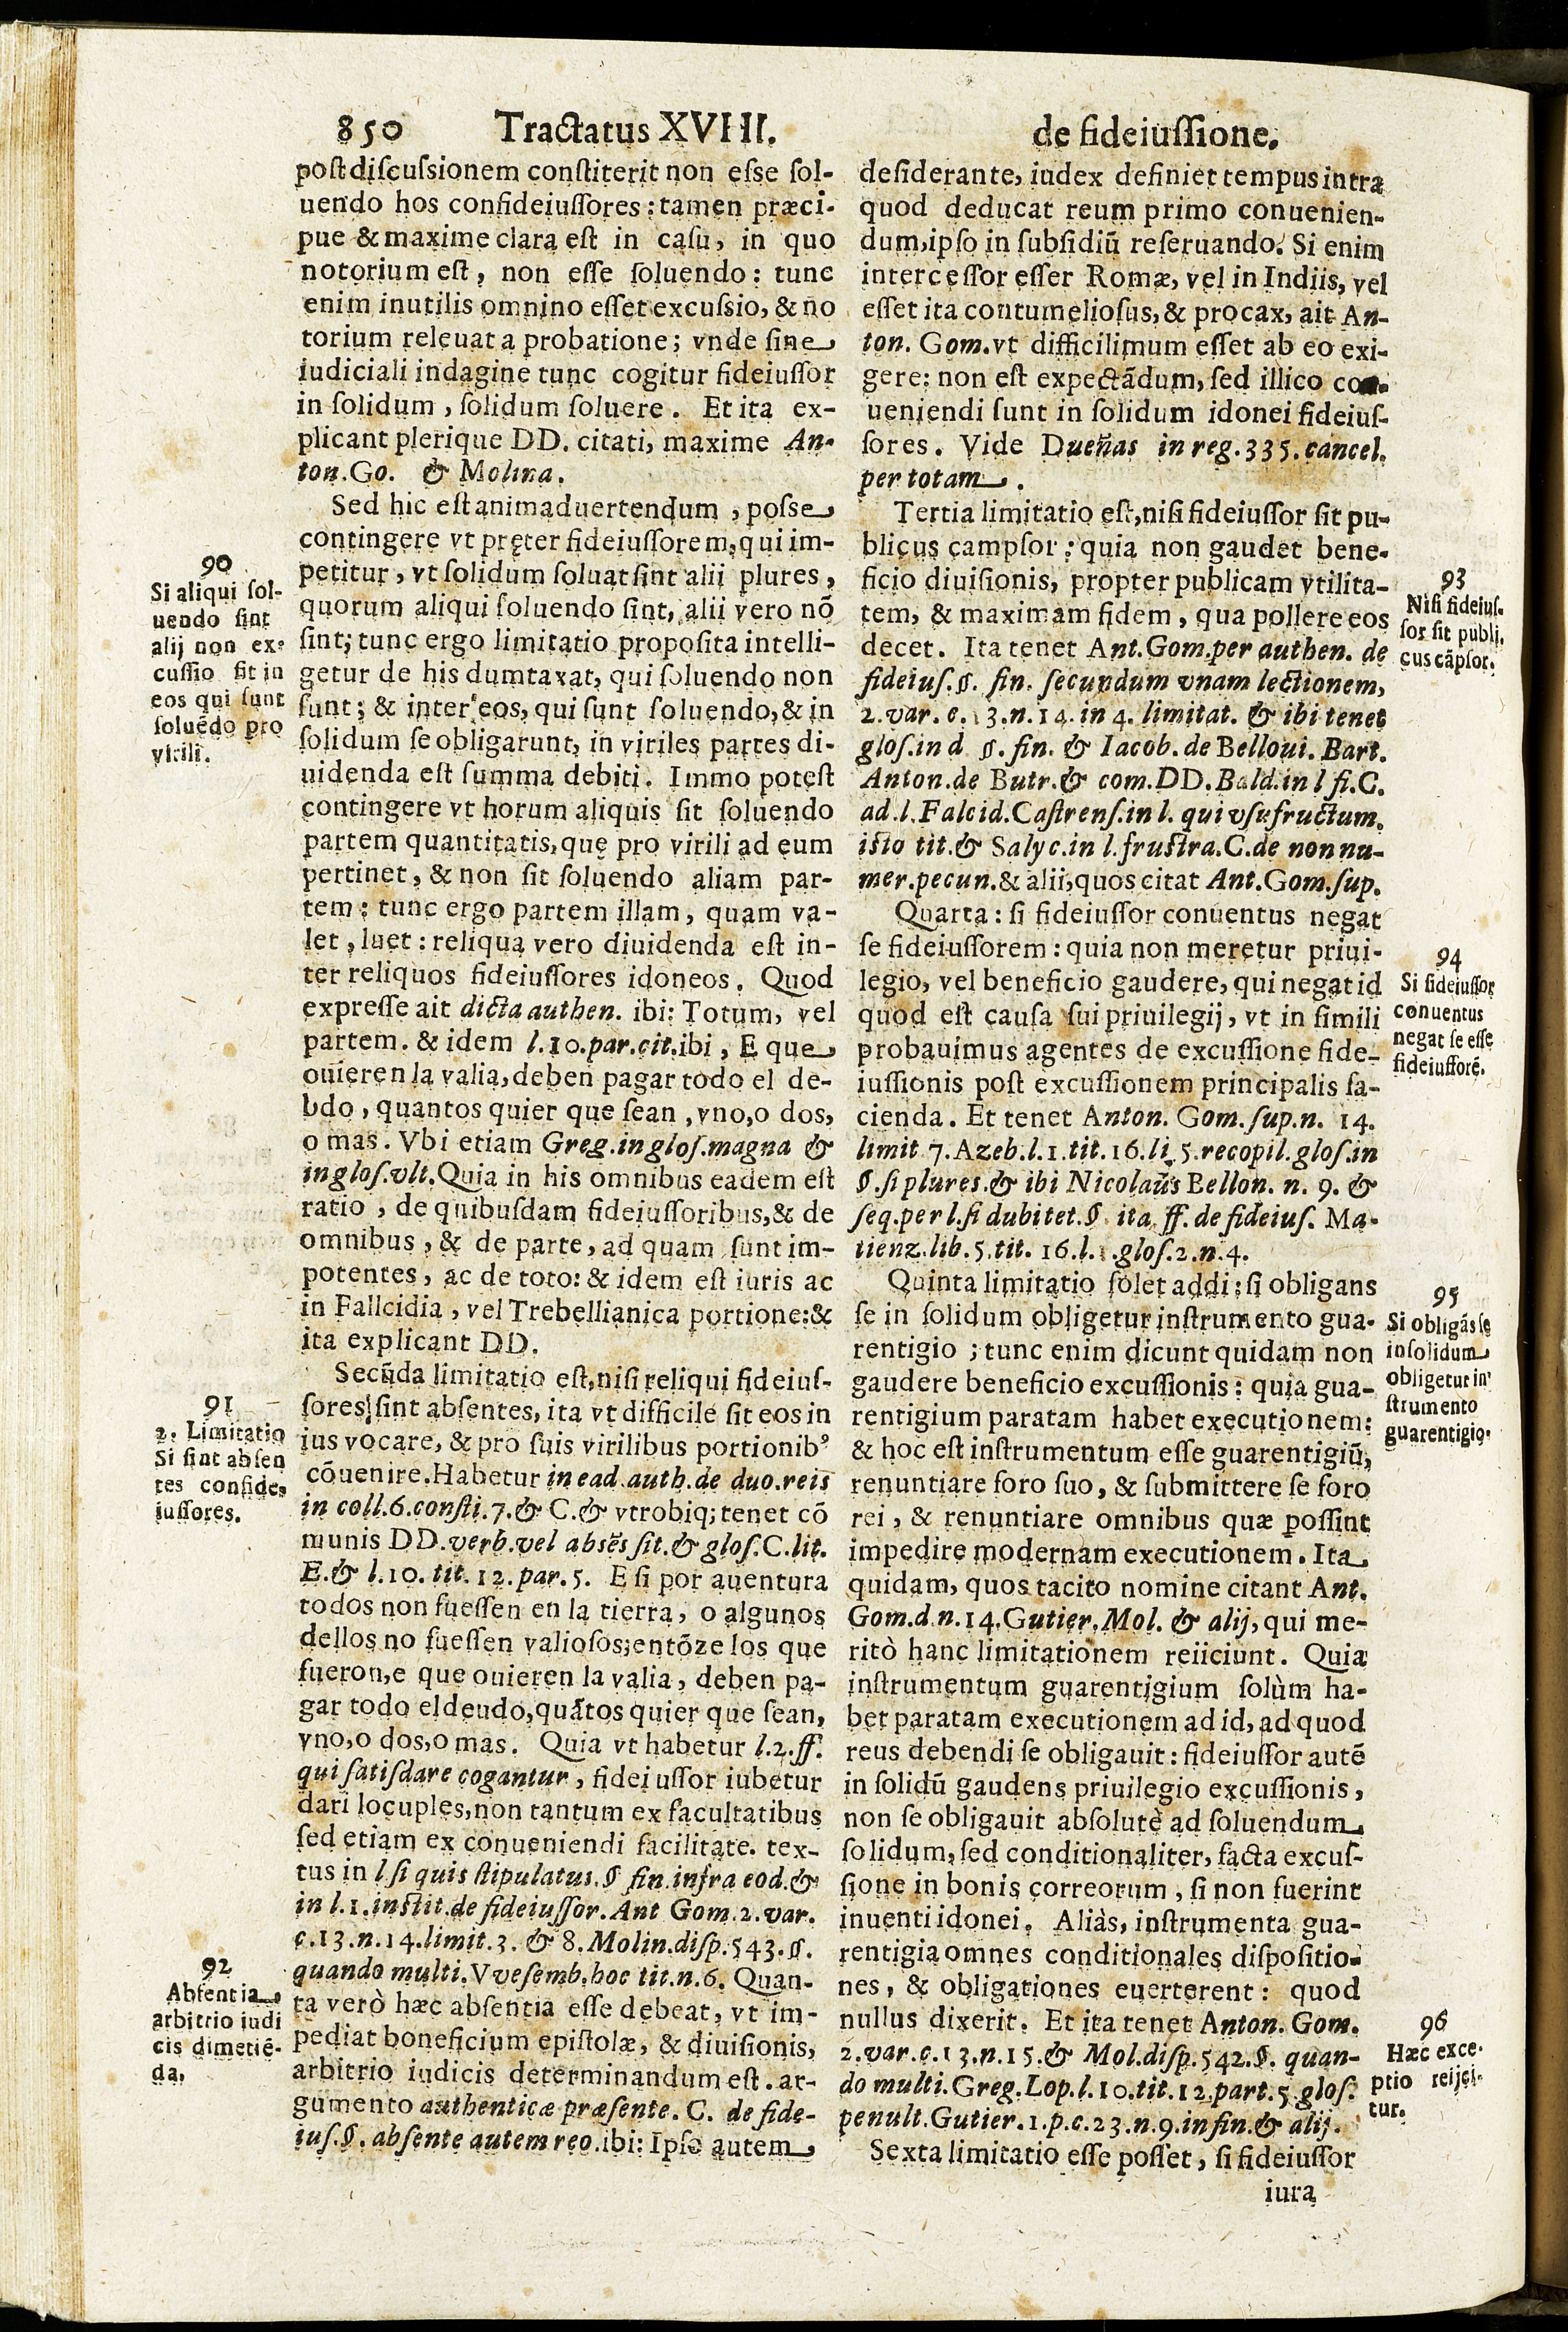 850 Tractatus XVIII. de fideiuſſione.
poſt diſcuſsionem conſtiterit non eſse ſol-
uendo hos confideiuſſores: tamen præci-
pue & maxime clara eſt in caſu, in quo
notorium eſt, non eſse ſoluendo: tunc
enim inutilis omnino eſſet excuſsio, & no
torium releuat a probatione; vnde ſine
iudiciali indagine tunc cogitur fideiuſſor
in ſolidum, ſolidum ſoluere. Et ita ex-
plicant plerique DD. citati, maxime An-
ton. Go. & Molina.
Sed hic eſt animaduertendum, poſse
contingere vt pręter fideiuſſorem, qui im-
petitur, vt ſolidum ſoluat ſint alii plures,
quorum aliqui ſoluendo ſint, alii vero nõ
ſint; tunc ergo limitatio propoſita intelli-
getur de his dumtaxat, qui ſoluendo non
ſunt; & inter eos, qui ſunt ſoluendo, & in
ſolidum ſe obligarunt, in viriles partes di-
uidenda eſt ſumma debiti. Immo poteſt
contingere vt horum aliquis ſit ſoluendo
partem quantitatis, quę pro virili ad eum
pertinet, & non ſit ſoluendo aliam par-
tem: tunc ergo partem illam, quam va-
let, luet: reliqua vero diuidenda eſt in-
ter reliquos fideiuſſores idoneos. Quod
expreſſe ait dicta authen. ibi: Totum, vel
partem. & idem l.10.par.cit.ibi, E que
ouieren la valia, deben pagar todo el de-
bdo, quantos quier que ſean, vno, o dos,
o mas. Vbi etiam Greg. in gloſ. magna &
in gloſ. vlt. Quia in his omnibus eadem eſt
ratio, de quibuſdam fideiuſſoribus, & de
omnibus, & de parte, ad quam ſunt im-
potentes, ac de toto: & idem eſt iuris ac
in Fallcidia, vel Trebellianica portione: &
ita explicant DD.
Secũda limitatio eſt, niſi reliqui fideiuſ-
ſores ſint abſentes, ita vt difficile ſit eos in
ius vocare, & pro ſuis virilibus portionibꝰ
cõuenire. Habetur in ead. auth. de duo. reis
in coll. 6. conſti. 7. & C. & vtrobiq; tenet cõ
munis DD. verb. vel absẽs ſit. & gloſ. C. lit.
E. & l. 10. tit. 12. par. 5. E ſi por auentura
todos non fueſſen en la tierra, o algunos
dellos no fueſſen valioſos; entõze los que
fueron, e que ouieren la valia, deben pa-
gar todo el deudo, quãtos quier que ſean,
vno, o dos, o mas. Quia vt habetur l. 2. ff.
qui ſatiſdare cogantur, fideiuſſor iubetur
dari locuples, non tantum ex facultatibus
ſed etiam ex conueniendi facilitate. tex-
tus in l ſi quis ſtipulatus. § fin. infra eod. &
in l. 1. inſtit. de fideiuſſor. Ant Gom. 2. var.
c. 13. n. 14. limit. 3. & 8. Molin. diſp. 543. §.
quando multi. Vveſemb. hoc tit. n. 6. Quan-
ta verò hæc abſentia eſſe debeat, vt im-
pediat boneficium epiſtolæ, & diuiſionis,
arbitrio iudicis determinandum eſt. ar-
gumento authenticæ præſente. C. de fide-
iuſ. §. abſente autem reo. ibi: Ipſo autem
90
Si aliqui ſol-
uendo ſint
alij non ex-
cuſſio fit in
eos qui ſunt
ſoluẽdo pro
virili.
91
2. Limitatio
Si ſint abſen
tes confide-
iuſſores.
92
Abſentia
arbitrio iudi
cis dimetiẽ-
da.
deſiderante, iudex definiet tempus intra
quod deducat reum primo conuenien-
dum, ipſo in ſubſidiũ reſeruando. Si enim
interceſſor eſſer Romæ, vel in Indiis, vel
eſſet ita contumelioſus, & procax, ait An-
ton. Gom. vt difficilimum eſſet ab eo exi-
gere: non eſt expectãdum, ſed illico con-
ueniendi ſunt in ſolidum idonei fideiuſ-
ſores. Vide Dueñas in reg. 335. cancel.
per totam.
Tertia limitatio eſt, niſi fideiuſſor ſit pu-
blicus campſor: quia non gaudet bene-
ficio diuiſionis, propter publicam vtilita-
tem, & maximam fidem, qua pollere eos
decet. Ita tenet Ant. Gom. per authen. de
fideiuſ. §. fin. ſecundum vnam lectionem,
2. var. c. 13. n. 14. in 4. limitat. & ibi tenet
gloſ. in d §. fin. & Iacob. de Belloui. Bart.
Anton. de Butr. & com. DD. Bald. in l fi. C.
ad. l. Falcid. Caſtrenſ. in l. qui vſufructum.
iſto tit. & Salyc. in l. fruſtra. C. de non nu-
mer. pecun. & alii, quos citat Ant. Gom. ſup.
Quarta: ſi fideiuſſor conuentus negat
ſe fideiuſſorem: quia non meretur priui-
legio, vel beneficio gaudere, qui negat id
quod eſt cauſa ſui priuilegij, vt in ſimili
probauimus agentes de excuſſione fide-
iuſſionis poſt excuſſionem principalis fa-
cienda. Et tenet Anton. Gom. ſup. n. 14.
limit. 7. Azeb. l. 1. tit. 16. li. 5. recopil. gloſ. in
§. ſi plures. & ibi Nicolaus Bellon. n. 9. &
ſeq. per l. ſi dubitet. § ita. ff. de fideiuſ. Ma-
tienz. lib. 5. tit. 16. l. 1. gloſ. 2. n. 4.
Quinta limitatio ſolet addi; ſi obligans
ſe in ſolidum obligetur inſtrumento gua-
rentigio; tunc enim dicunt quidam non
gaudere beneficio excuſſionis: quia gua-
rentigium paratam habet executionem:
& hoc eſt inſtrumentum eſſe guarentigiũ,
renuntiare foro ſuo, & ſubmittere ſe foro
rei, & renuntiare omnibus quæ poſſint
impedire modernam executionem. Ita
quidam, quos tacito nomine citant Ant.
Gom. d. n. 14. Gutier. Mol. & alij, qui me-
ritò hanc limitationem reiiciunt. Quia
inſtrumentum guarentigium ſolùm ha-
bet paratam executionem ad id, ad quod
reus debendi ſe obligauit: fideiuſſor autẽ
in ſolidũ gaudens priuilegio excuſſionis,
non ſe obligauit abſolutè ad ſoluendum
ſolidum, ſed conditionaliter, facta excuſ-
ſione in bonis correorum, ſi non fuerint
inuenti idonei. Aliàs, inſtrumenta gua-
rentigia omnes conditionales diſpoſitio-
nes, & obligationes euerterent: quod
nullus dixerit. Et ita tenet Anton. Gom.
2. var. c. 13. n. 15. & Mol. diſp. 542. §. quan-
do multi. Greg. Lop. l. 10. tit. 12. part. 5. gloſ.
penult. Gutier. 1. p. c. 23. n. 9. in fin. & alij.
Sexta limitatio eſſe poſſet, ſi fideiuſſor
iura
93
Niſi fideiuſ-
ſor ſit publi-
cus cãpſor.
94
Si fideiuſſor
conuentus
negat ſe eſſe
fideiuſſorẽ.
95
Si obligãs ſe
in ſolidum
obligetur in
ſtrumento
guarentigio.
96
Hæc exce-
ptio reijci-
tur.